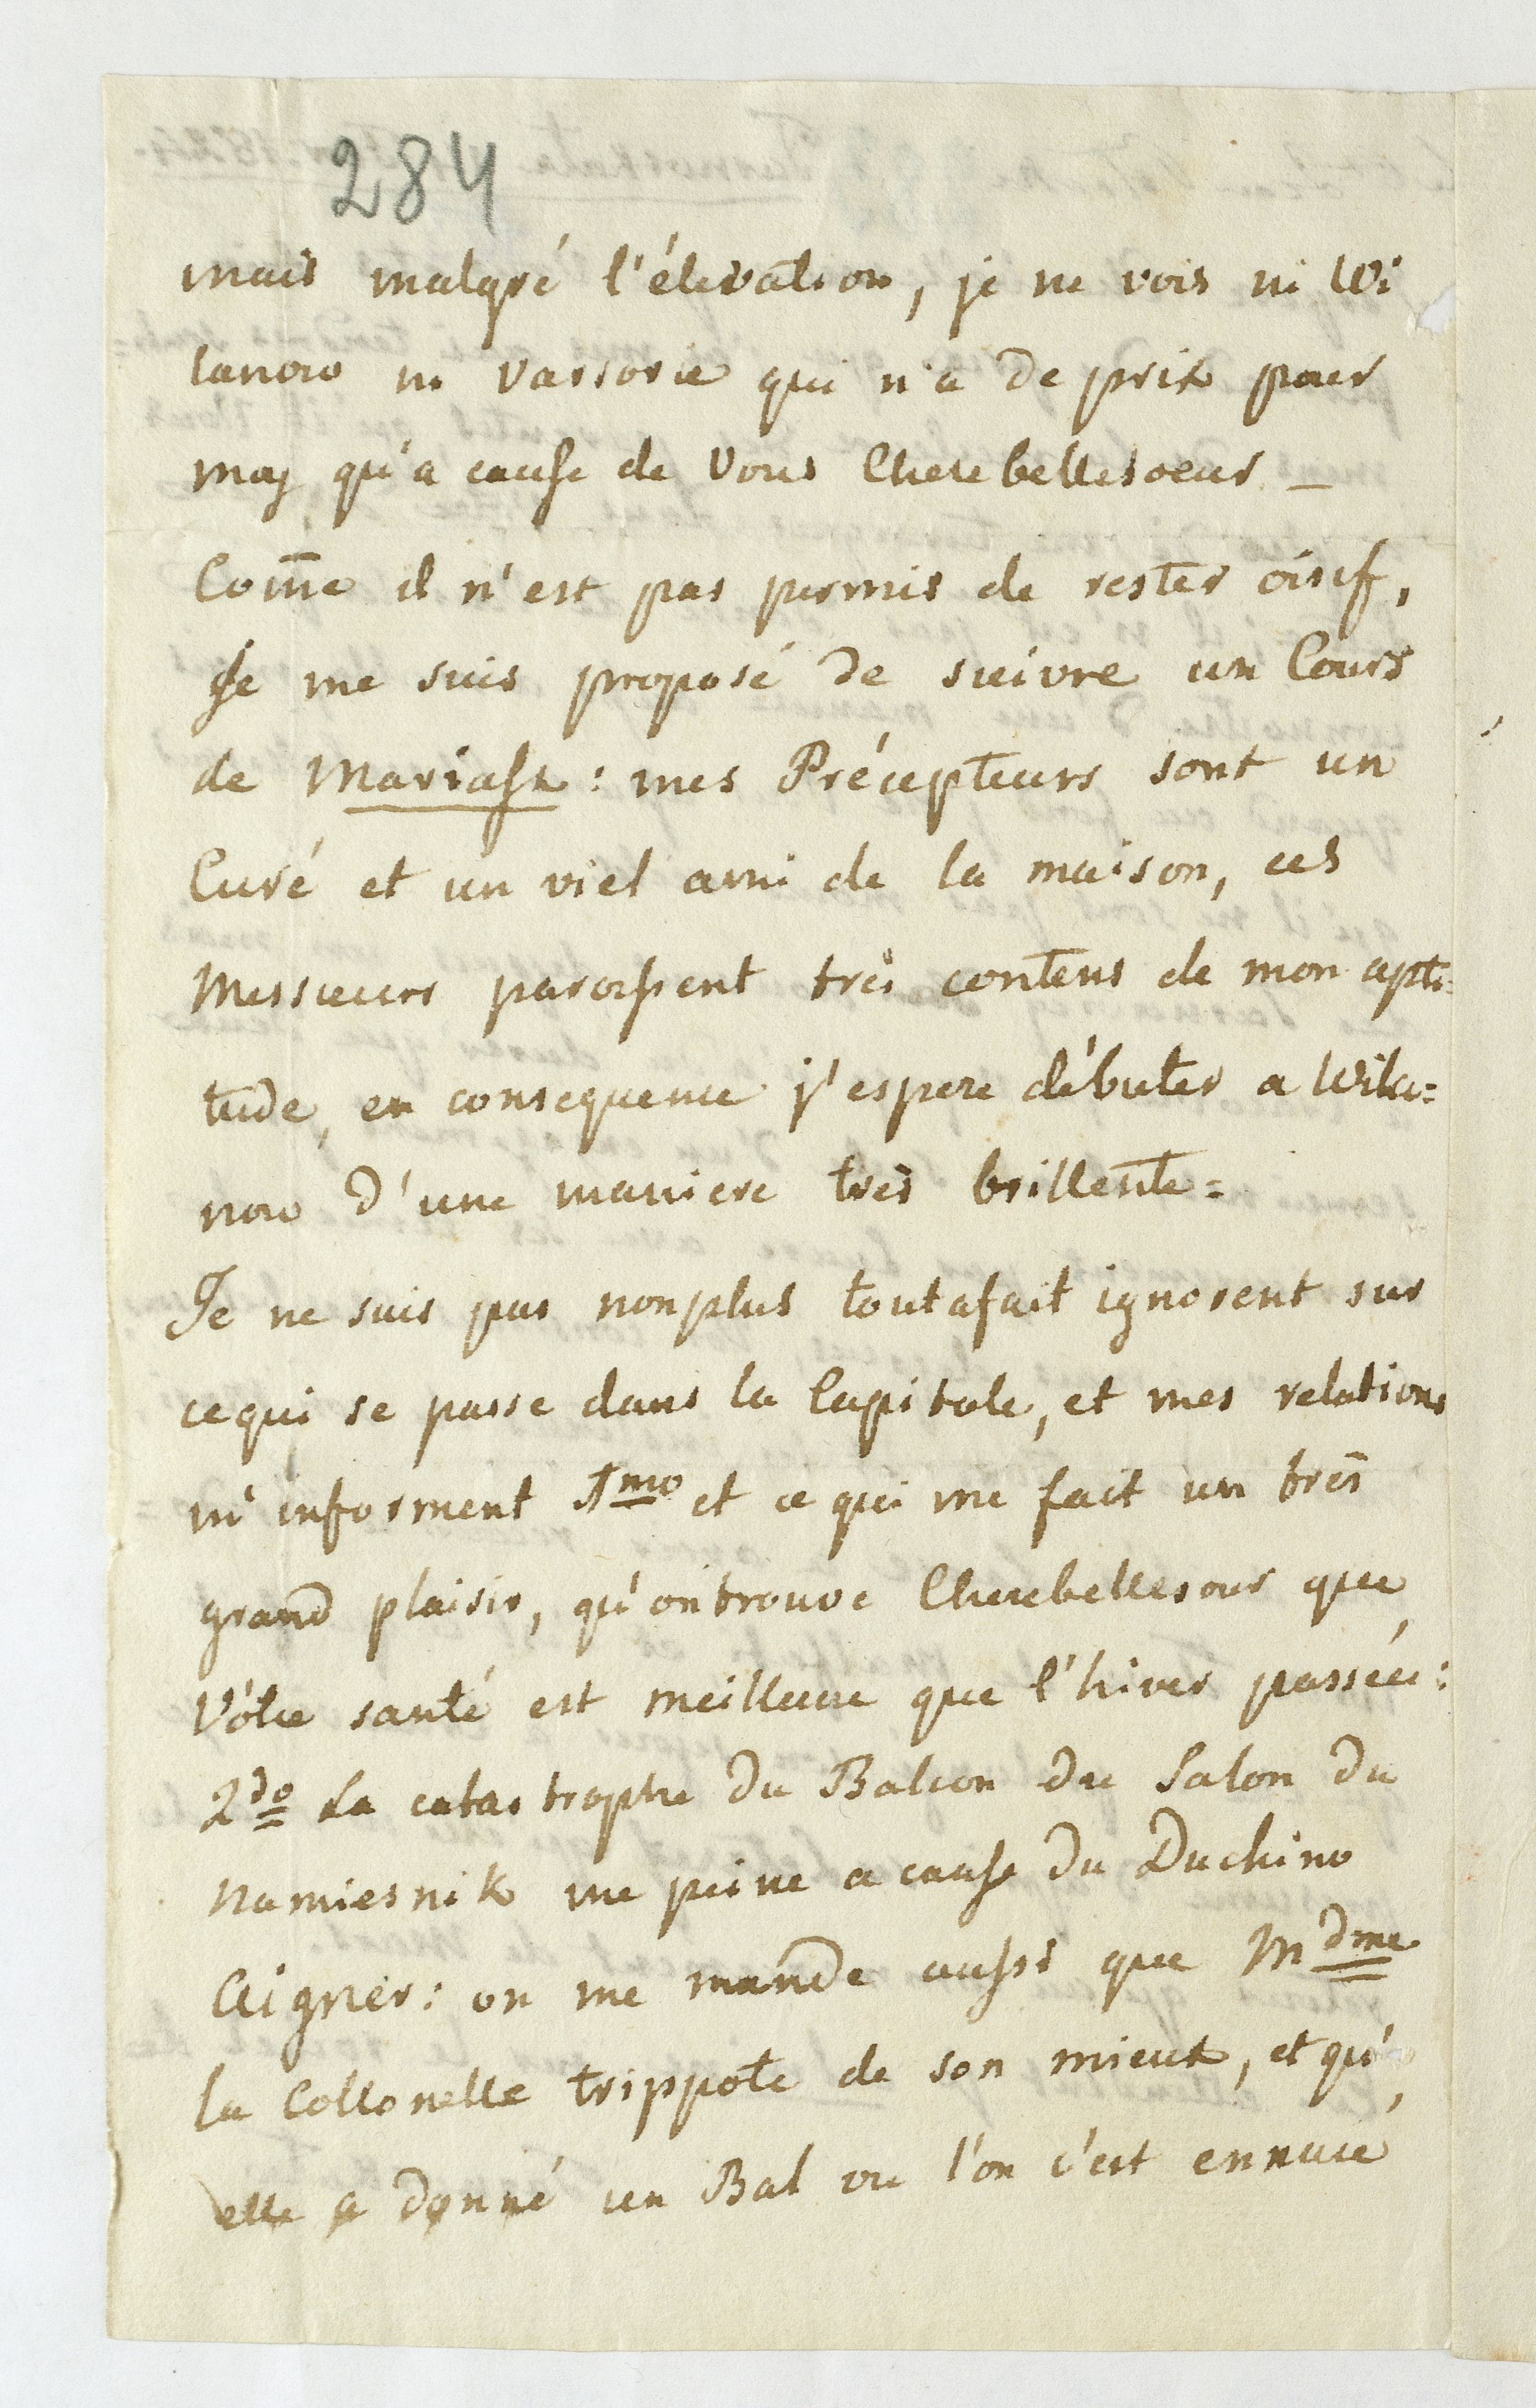 284
mais malgré l'élevation, je ne vois ni Wi
lanow ni Varsovie qui n'a de prix pour
moy qu'a cause de Vous Cherebellesoeur _
Com̄e il n'est pas permis de rester oisif,
je me suis proposé de suivre un Cours
de Mariasz : mes Précepteurs sont un
Curé et un viel ami de la maison, ces
Messieurs paroissent très contens de mon apti=
tude, en consequence j'espere débuter a Wila=
now d'une maniere très brillente=
Je ne suis pas nonplus toutafait ignorent sur
cequi se passe dans la Capitale, et mes relations
m'informent 1mo et ce qui me fait un très
grand plaisir, qu'ontrouve Cherebellesoeur que
Vôtre santé est meilleure que l'hiver passée:
2do La catastrophe du Balcon du Salon du
Namiesnik me peine a cause du Duchino
Aigner: on me mande aussi que Mdme
la Collonelle trippote de son mieux, et qu'
elle a donné un Bal ou l'on s'est ennuié